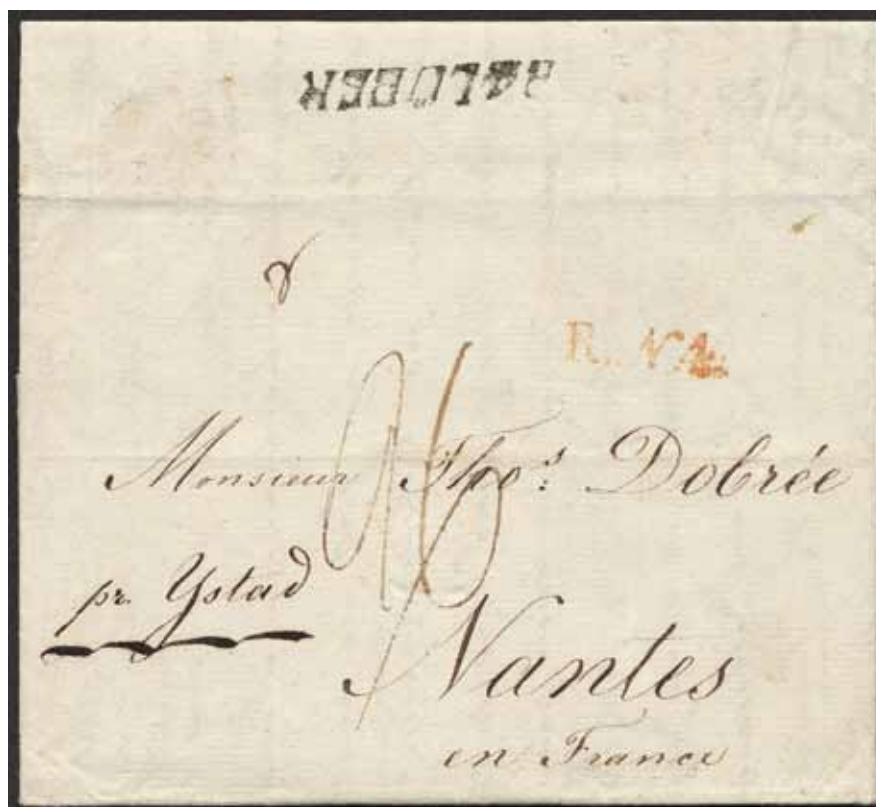 LÜBEK
R. N. 4.
96
Monsieur Thos. Dobrée
pr. Ystad
Nantes
en France